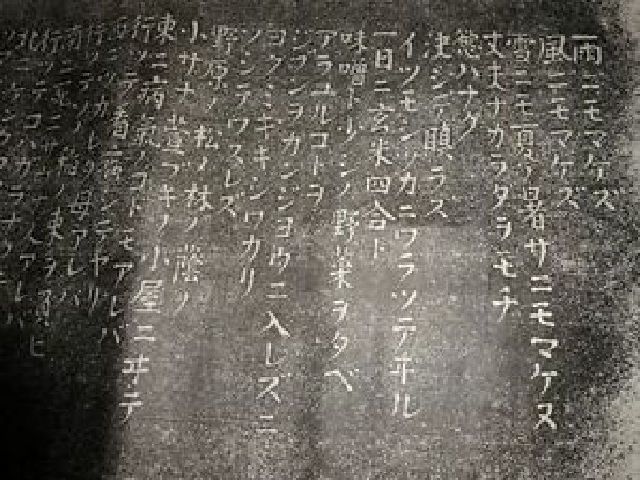 雨ニモマケズ
風ニモマケズ
雪ニモ夏ノ暑サニモマケヌ
丈夫ナカラダヲモチ
慾ハナク
決シテ瞋ラズ
イツモシヅカニワラッテヰル
一日ニ玄米四合ト
味噌ト少シノ野菜ヲタベ
アラユルコトヲ
ジブンヲカンジョウニ入レズニ
ヨクミキキシワカリ
ソシテワスレズ
野原ノ松ノ林ノ蔭ノ
小サナ萱ブキノ小屋ニヰテ
東ニ病気ノコドモアレバ
行ッテ看病シテヤリ
西ニツカレタ母アレバ
行ッテソノ稲ノ束ヲ負ヒ
南ニ死ニサウナ人アレバ
行ッテコハガラナクテモ
北ニケンクヮ